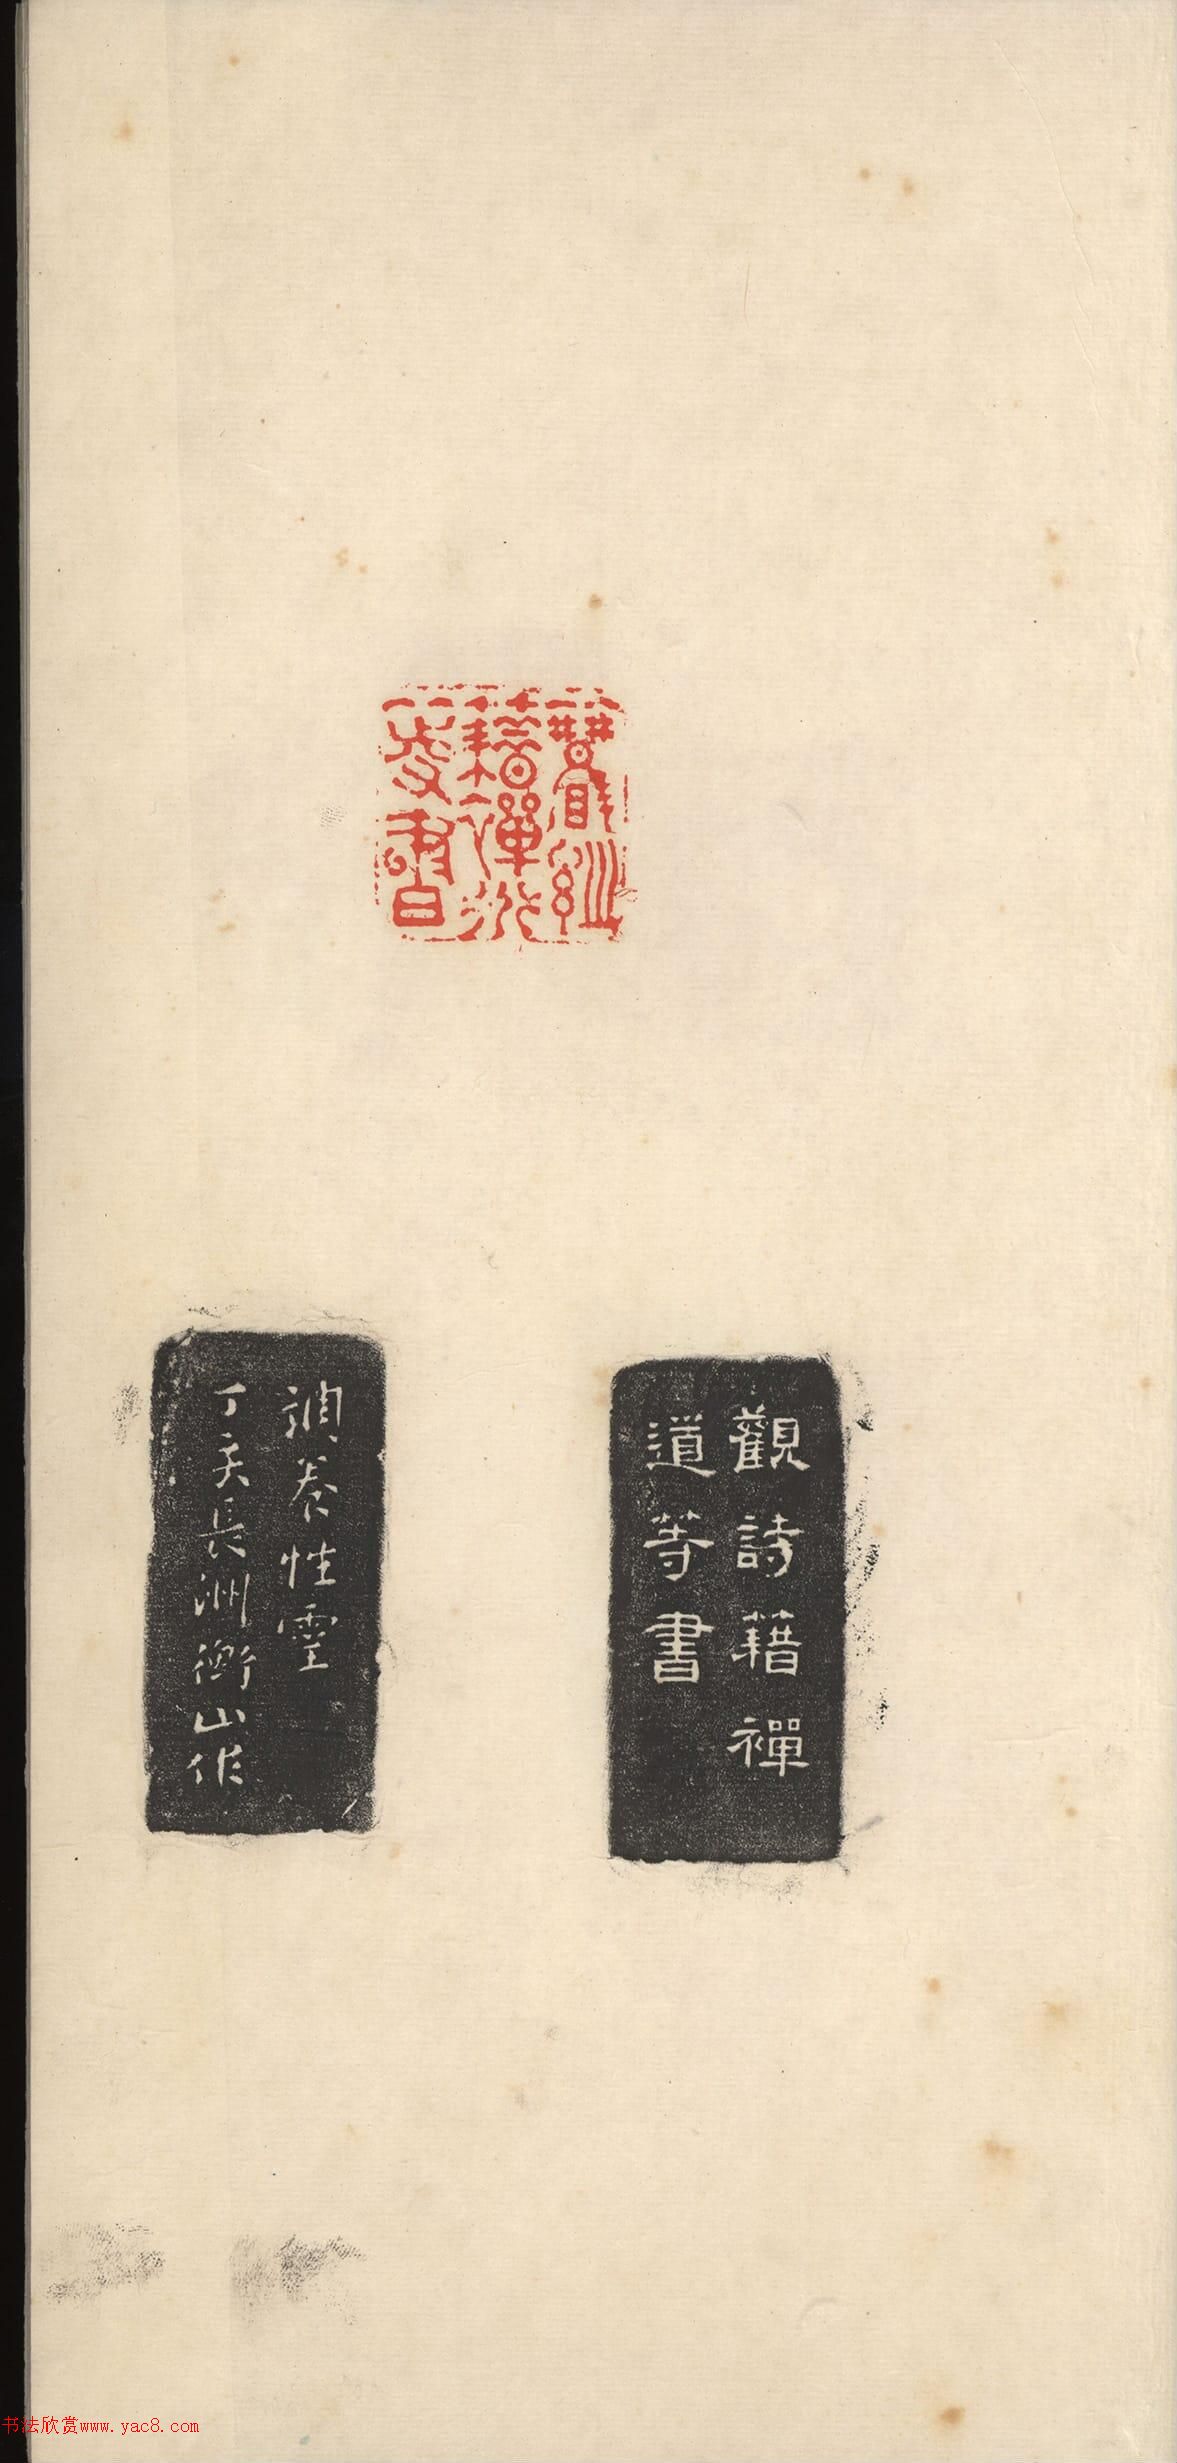 觀詩藉禪
道等書
調養性靈
丁亥長洲衡山作
书法欣赏www.yac8.com